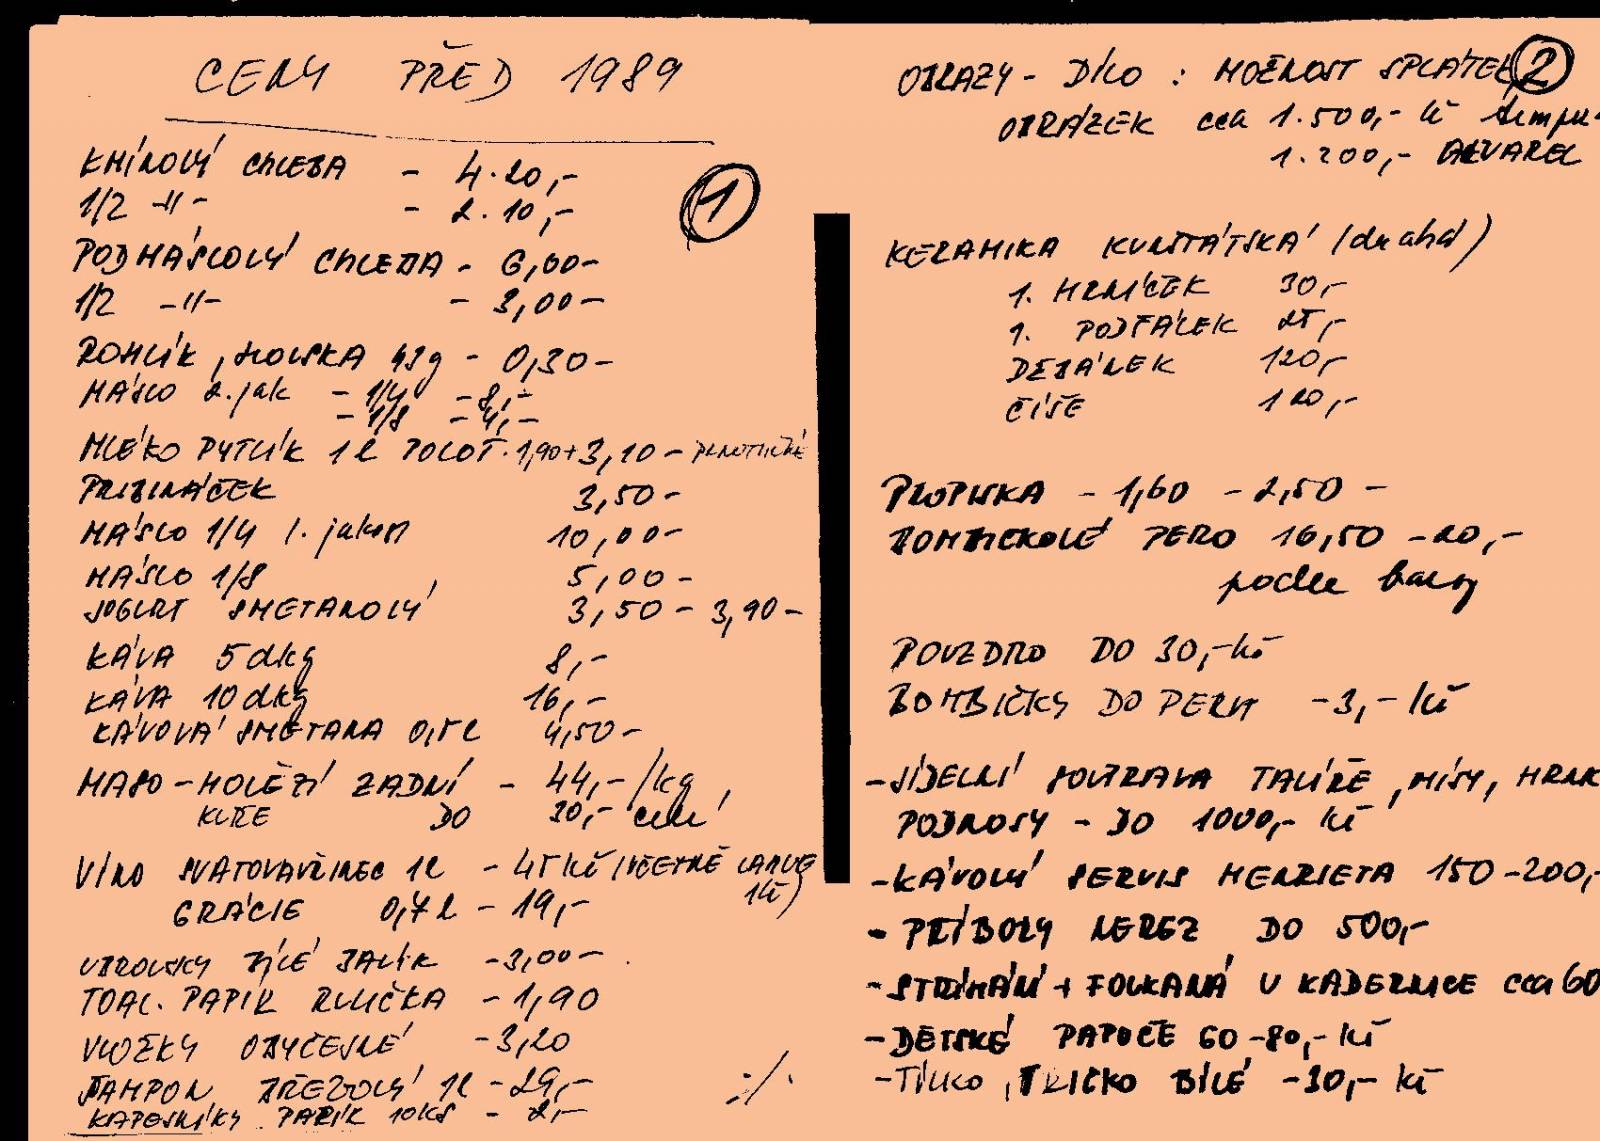 CENY PŘED 1989
1
KMÍNOVÝ CHLEBA - 4.20,-
1/2 -"- - 2.10,-
PODMÁSLOVÝ CHLEBA - 6,00-
1/2 -"- - 3,00-
ROHLÍK, HOUSKA 43g - 0,30-
MÁSLO 2.jak - 1/4 - 8,-
- 1/8 - 4,-
MLÉKO PYTLÍK 1l POLOT. 1,90+3,10-
PRIBINÁČEK 3,50-
MÁSLO 1/4 1. jakost 10,00-
MÁSLO 1/8 5,00-
JOGURT SMETANOVÝ 3,50-3,90-
KÁVA 5dkg 8,-
KÁVA 10dkg 16,-
KÁVOVÁ SMETANA 0,5l 4,50-
MASO - HOVĚZÍ ZADNÍ - 44,-/kg,
KUŘE DO 30,- celé
VÍNO SVATOVAVŘINEC 1l - 45 Kč (VČETNĚ LAHVE
1Kč)
GRÁCIE 0,7l - 19,-
UBROUSKY BÍLÉ BALÍK -3,00-
TOAL. PAPÍR RULIČKA - 1,90
VLOŽKY OBYČEJNÉ -3,20
ŠAMPON BŘEZOVÝ 1l - 29,-
KAPESNÍKY PAPÍR 10KS - 2,-
./.
2
OBRAZY - DÍLO : MOŽNOST SPLÁTEK
OBRÁZEK cca 1.500,- Kč
1.200,- AKVAREL
KERAMIKA KUNŠTÁTSKÁ (drahá)
1. HRNÍČEK 30,-
1. PODTÁLEK 25,-
DŽBÁNEK 120,-
ČÍŠE 120,-
PROPISKA - 1,60 - 2,50 -
BOMBIČKOVÉ PERO 16,50 -20,-
podle barvy
POUZDRO DO 30,- Kč
BOMBIČKY DO PERA -3,- Kč
-JÍDELNÍ SOUPRAVA TALÍŘE, MÍSY, HRNK
PODNOSY - DO 1000,- Kč
-KÁVOVÝ SERVIS HENRIETA 150-200,-
- PŘÍBORY NEREZ DO 500,-
-STŘÍHÁNÍ + FOUKANÁ U KADEŘNICE cca 60
-DĚTSKÉ PAPUČE 60-80,- Kč
-TÍLKO, TRIČKO BÍLÉ -30,- Kč